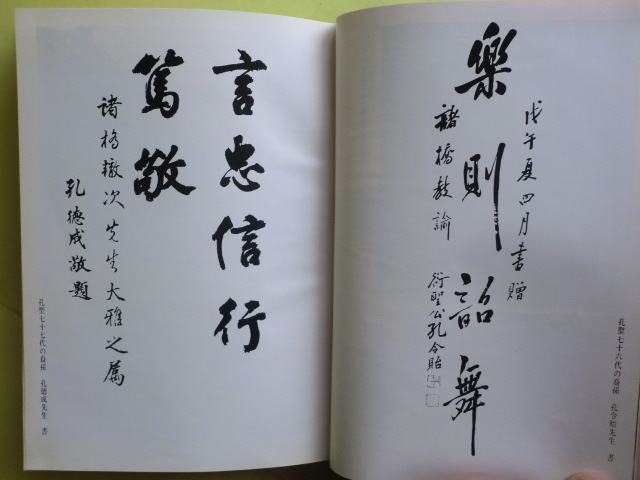 戊午夏四月書贈
樂則韶舞
諸橋教諭
衍聖公孔令貽
孔聖七十六代の裔孫 孔令貽先生 書
言忠信行
篤敬
諸橋轍次先生大雅之屬
孔德成敬題
孔聖七十七代の裔孫 孔徳成先生 書